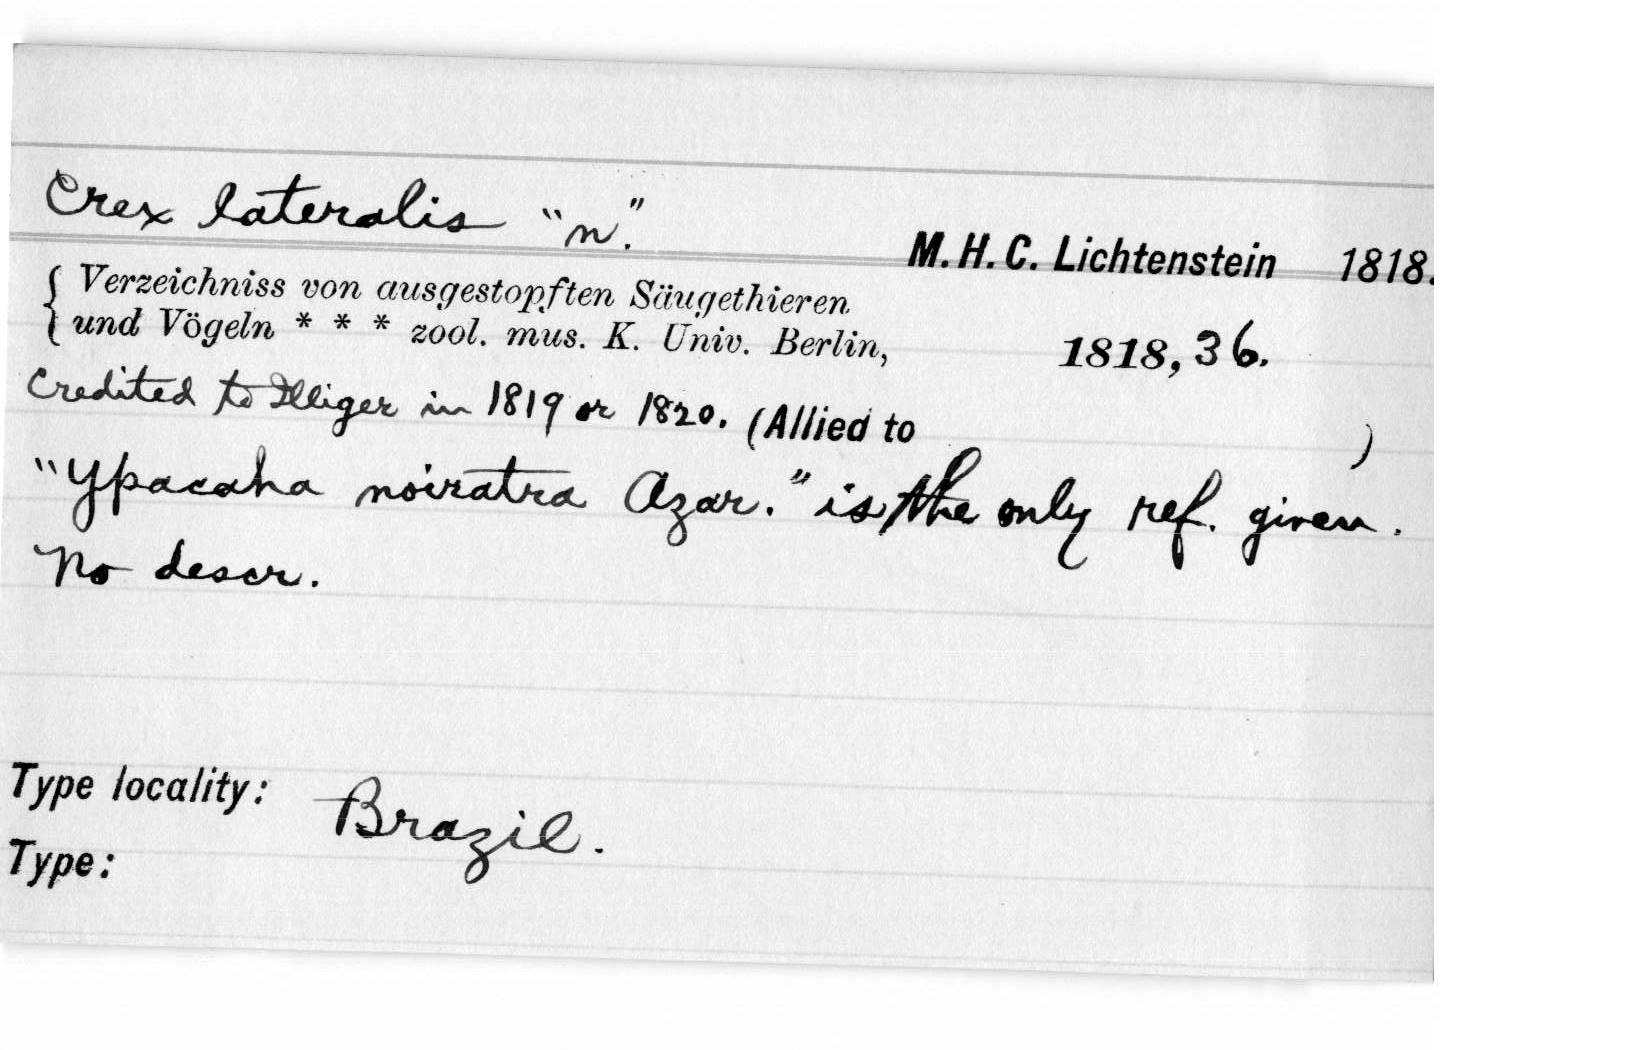 Crex lateralis "n."
M. H. C. Lichtenstein 1818.
Verzeichniss von ausgestopften Säugethieren
und Vögeln * * * zool. mus. K. Univ. Berlin, 1818, 36.
Credited to Illiger in 1819 or 1820. (Allied to )
"Ypacaha noiratra Azar." is the only ref. given.
No descr.
Type locality: Brazil.
Type: